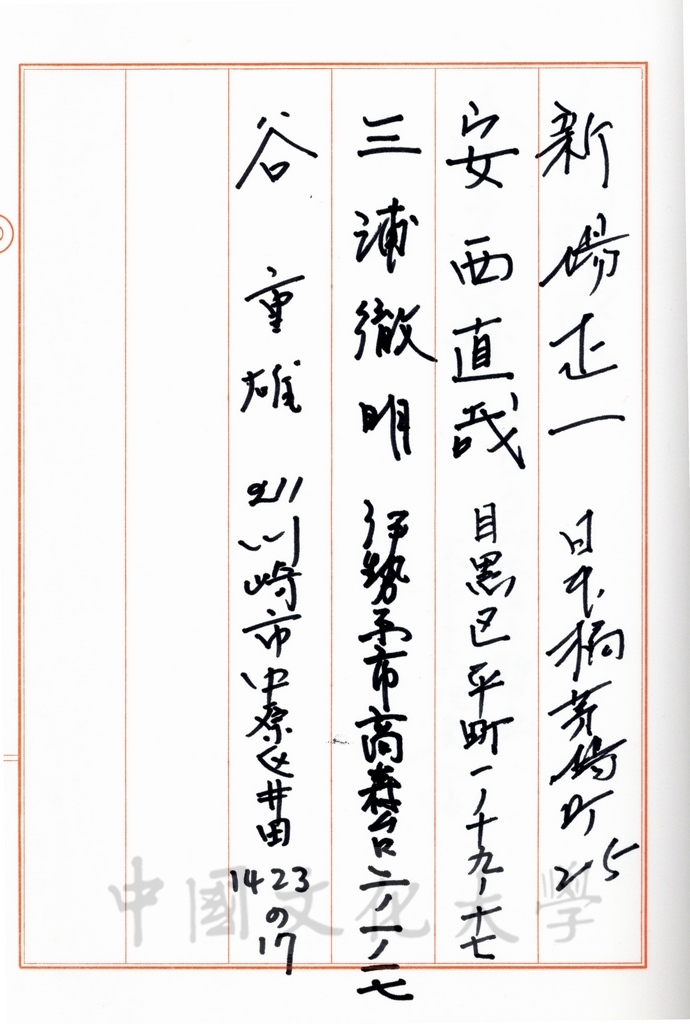 新場正一 日本橋茅場町 2-5
安西直哉 目黒区平町一ノ十九ノ十七
三浦徹明 伊勢原市高森台二ノ一ノ一七
谷 重雄 211 川崎市中原区井田 1423の17
中國文化大學